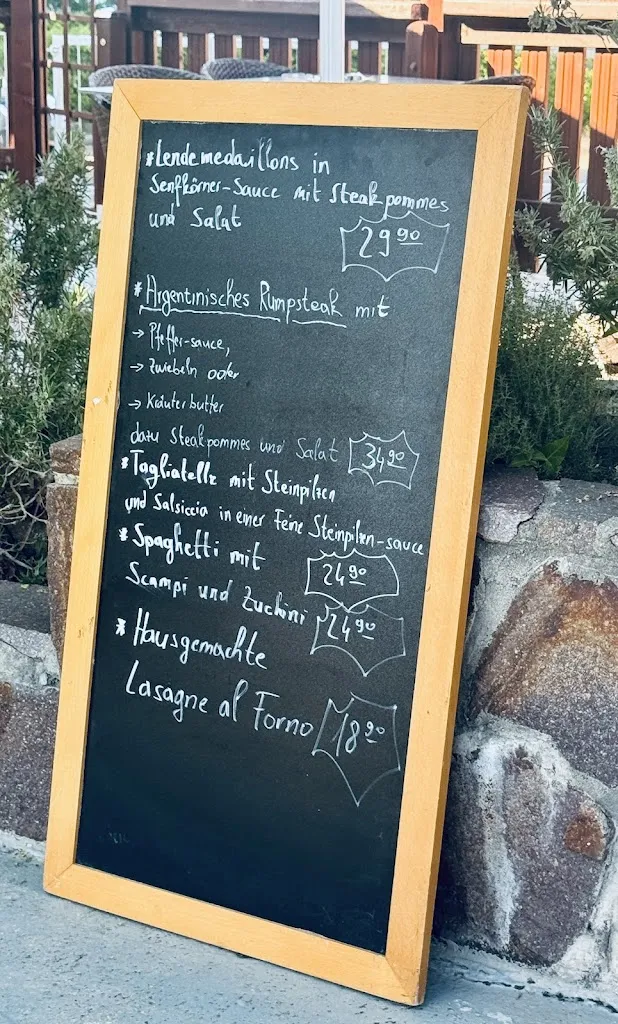 *Lendemedaillons in
Senfkörner-Sauce mit Steakpommes
und Salat
29 90
*Argentinisches Rumpsteak mit
→ Pfeffer-sauce,
→ Zwiebeln oder
→ Kräuterbutter
dazu Steakpommes und Salat 34 90
*Tagliatelle mit Steinpilzen
und Salsiccia in einer Feine Steinpilzen-sauce
24 90
*Spaghetti mit
Scampi und Zuchini 24 90
*Hausgemachte
Lasagne al Forno 18 90